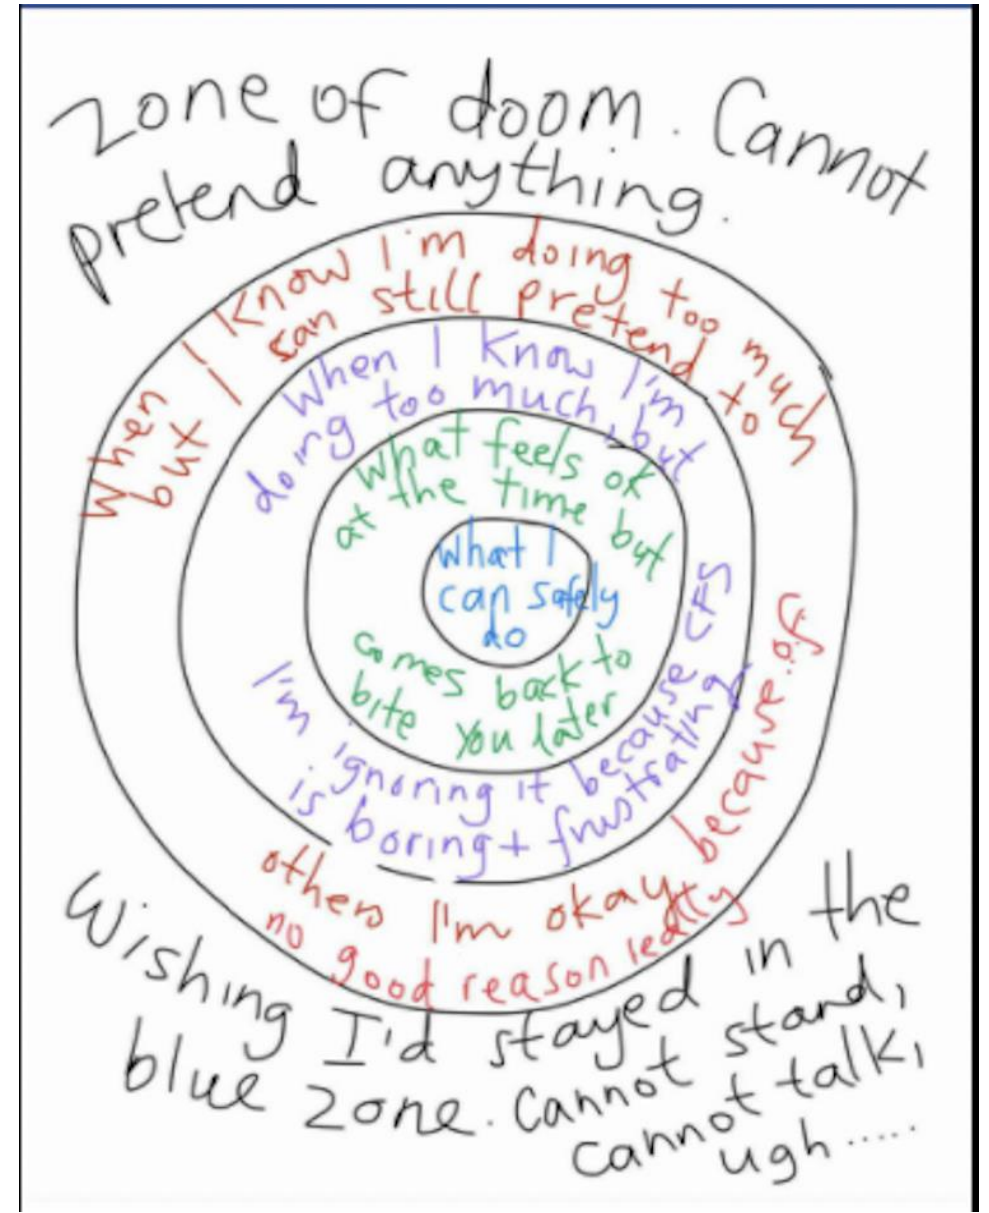 Zone of doom. Cannot
pretend anything.
When I know I'm doing too much
but I can still pretend to
others I'm okay because..of
no good reason really
When I know I'm
doing too much, but
I'm ignoring it because CFS
is boring + frustrating.
What feels ok
at the time but
comes back to
bite you later
What I
can safely
do
Wishing I'd stayed in the
blue zone. Cannot stand,
cannot talk,
ugh.....